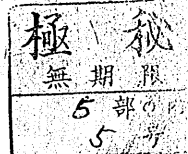 極秘
無期限
5部の
5号